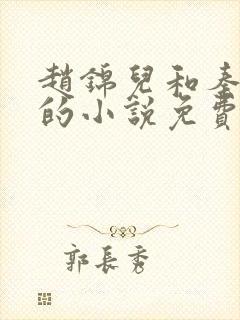 趙錦兒和秦
的小說免費
郭長秀